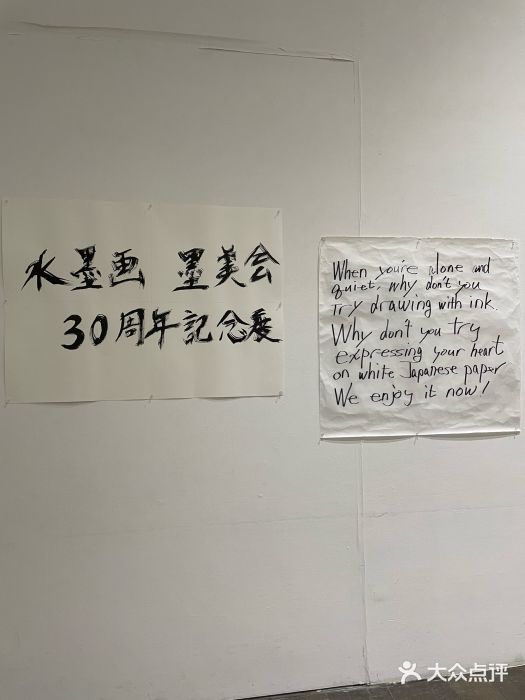 水墨画 墨美会
30周年記念展
When you're alone and
quiet, why don't you
try drawing with ink.
Why don't you try
expressing your heart
on white Japanese paper
We enjoy it now!
大众点评